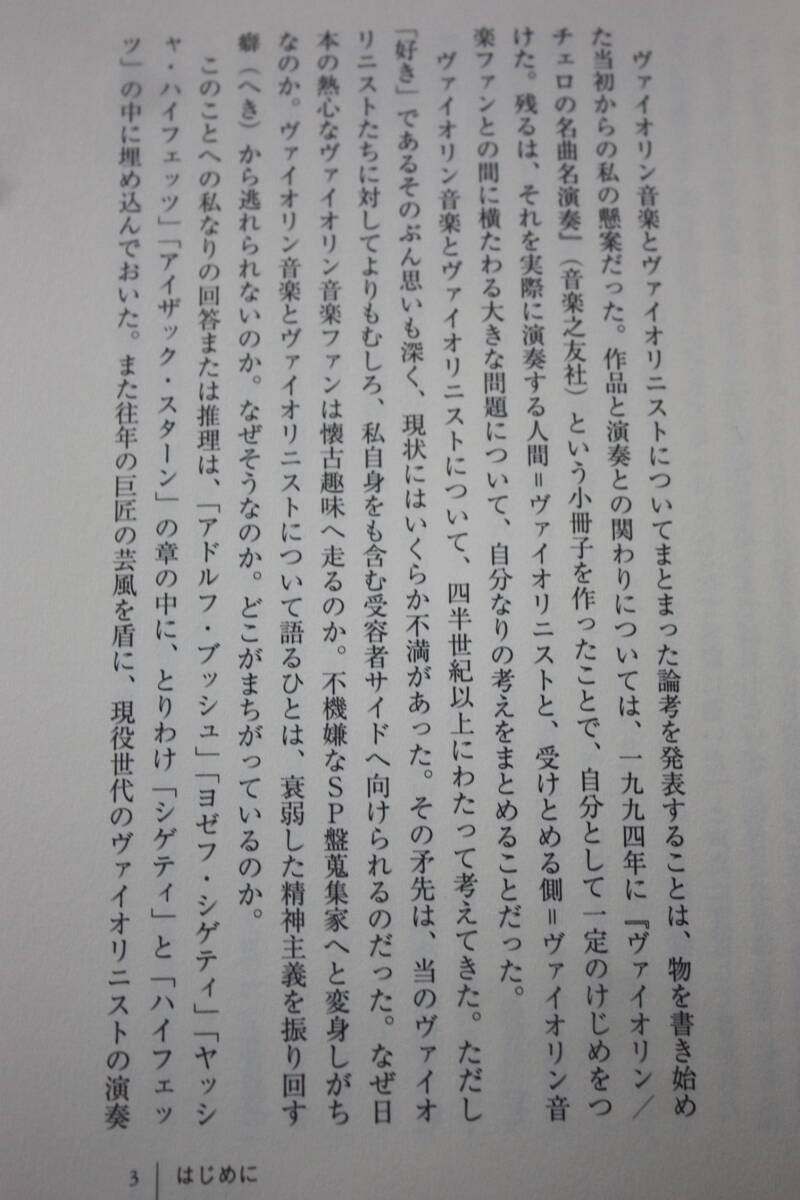 ヴァイオリン音楽とヴァイオリニストについてまとまった論考を発表することは、物を書き始め
た当初からの私の懸案だった。作品と演奏との関わりについては、一九九四年に『ヴァイオリン／
チェロの名曲名演奏』（音楽之友社）という小冊子を作ったことで、自分として一定のけじめをつ
けた。残るは、それを実際に演奏する人間＝ヴァイオリニストと、受けとめる側＝ヴァイオリン音
楽ファンとの間に横たわる大きな問題について、自分なりの考えをまとめることだった。
ヴァイオリン音楽とヴァイオリニストについて、四半世紀以上にわたって考えてきた。ただし
「好き」であるそのぶん思いも深く、現状にはいくらか不満があった。その矛先は、当のヴァイオ
リニストたちに対してよりもむしろ、私自身をも含む受容者サイドへ向けられるのだった。なぜ日
本の熱心なヴァイオリン音楽ファンは懐古趣味へ走るのか。不機嫌なＳＰ盤蒐集家へと変身しがち
なのか。ヴァイオリン音楽とヴァイオリニストについて語るひとは、衰弱した精神主義を振り回す
癖（へき）から逃れられないのか。なぜそうなのか。どこがまちがっているのか。
このことへの私なりの回答または推理は、「アドルフ・ブッシュ」「ヨゼフ・シゲティ」「ヤッシ
ャ・ハイフェッツ」「アイザック・スターン」の章の中に、とりわけ「シゲティ」と「ハイフェッ
ツ」の中に埋め込んでおいた。また往年の巨匠の芸風を盾に、現役世代のヴァイオリニストの演奏
3 はじめに